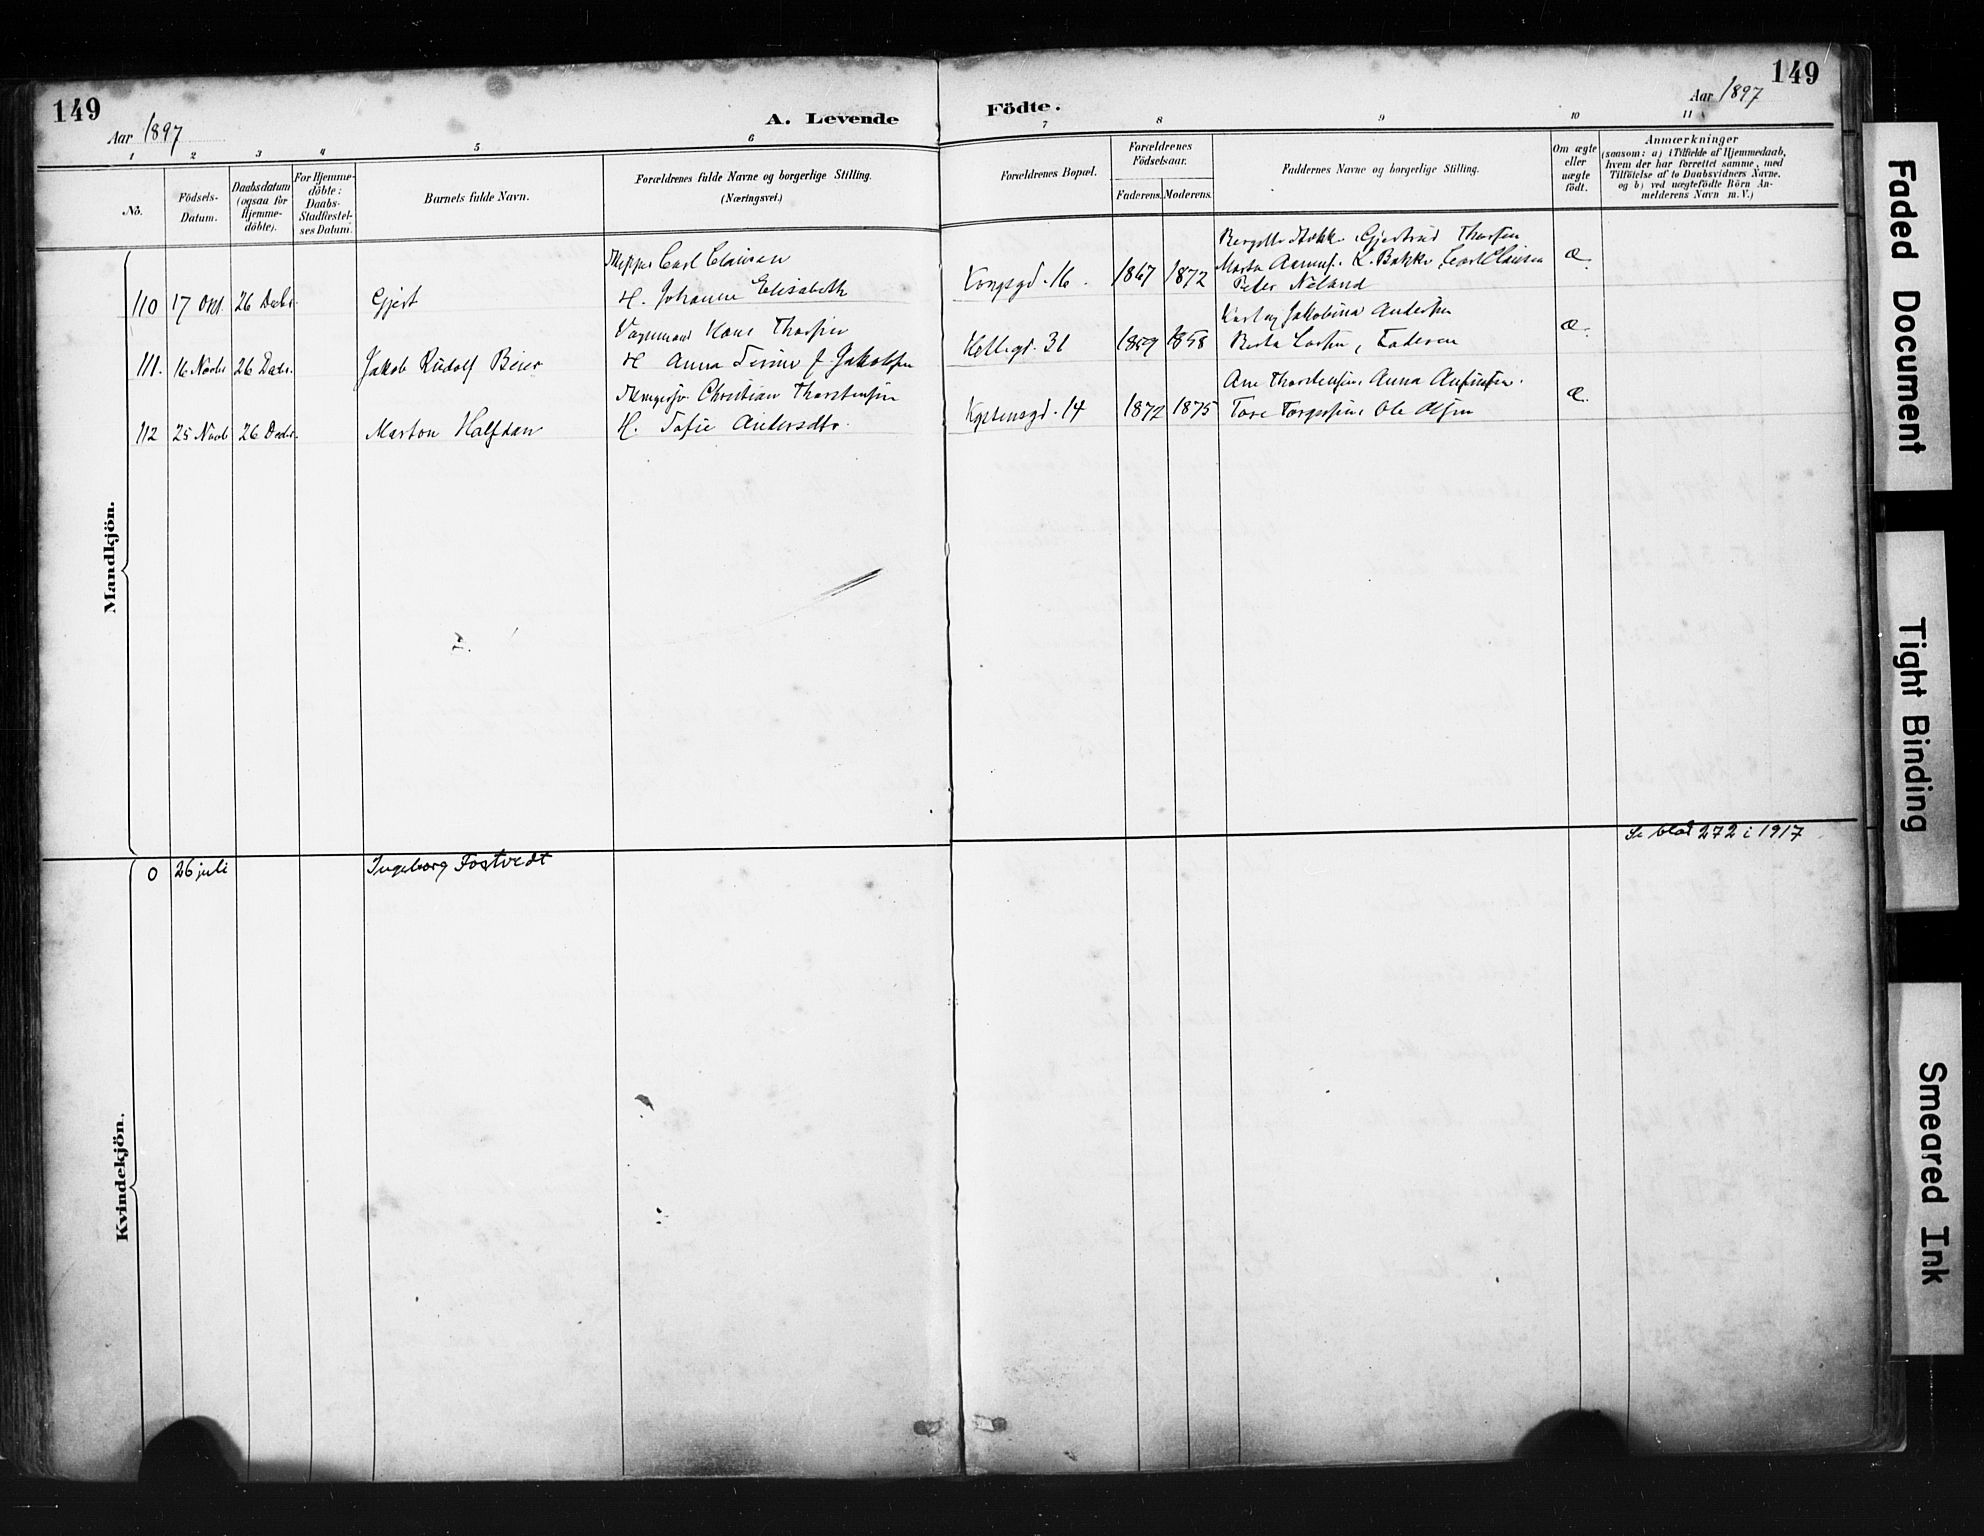 149
149
Aar 1897
A. Levende
Födte.
Aar 1897
1 2 3 4 5 6 7 8 9 10 11
Nö.
Födsels-
Datum.
Daabsdatum
(ogsaa for
Hjemme-
döbte).
For Hjemme-
döbte:
Daabs-
Stadfæstel-
ses Datum.
Barnets fulde Navn.
Forældrenes fulde Navne og borgerlige Stilling.
(Næringsvei.)
Forældrenes Bopæl.
Forældrenes
Födselsaar.
Faderens. Moderens.
Faddernes Navne og borgerlige Stilling.
Om ægte
eller
uægte
födt.
Anmærkninger
(saasom: a) i Tilfælde af Hjemmedaab,
hvem der har forrettet samme, med
Tilföielse af to Daabsvidners Navne,
og b) ved uægtefödte Börn An-
melderens Navn m. V.)
Mandkjön.
Skipper Carl Clausen
110 17 Okt. 26 Decbr. Gjert H. Johanne Elisabeth
Kongsgd. 16. 1867 1872
Gjertrud Thorsen
K. Bakke, Carl Clausen
Peder Nåland
Æ.
Hans Thorsen
111. 16 Novbr 26 Decbr. Jakob Rudolf Beier H. Anna Serine f. Jakobsen
31 1859 1858
Jakobine Andersen
Berta Larsen, Faderen
Æ.
Christian Thorstensen
112 25 Novb 26 Decbr. Marton Halfdan H. Sofie Andersdtr.
14 1872 1875
Ane Thorstensen, Anna
Tore Torgersen, Ole Olsen
Æ.
Kvindekjön.
0 26 juli Ingeborg Fostvedt
Se blad 272 i 1917
Faded Document
Tight Binding
Smeared Ink